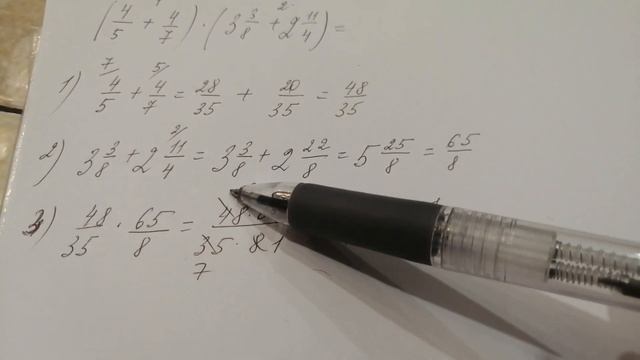 (4/5 + 4/7) · (3 3/8 + 2 11/4) =
1) 4/5 + 4/7 = 28/35 + 20/35 = 48/35
2) 3 3/8 + 2 11/4 = 3 3/8 + 2 22/8 = 5 25/8 = 65/8
3) 48/35 · 65/8 = 48 · / 35 · 8 1
7